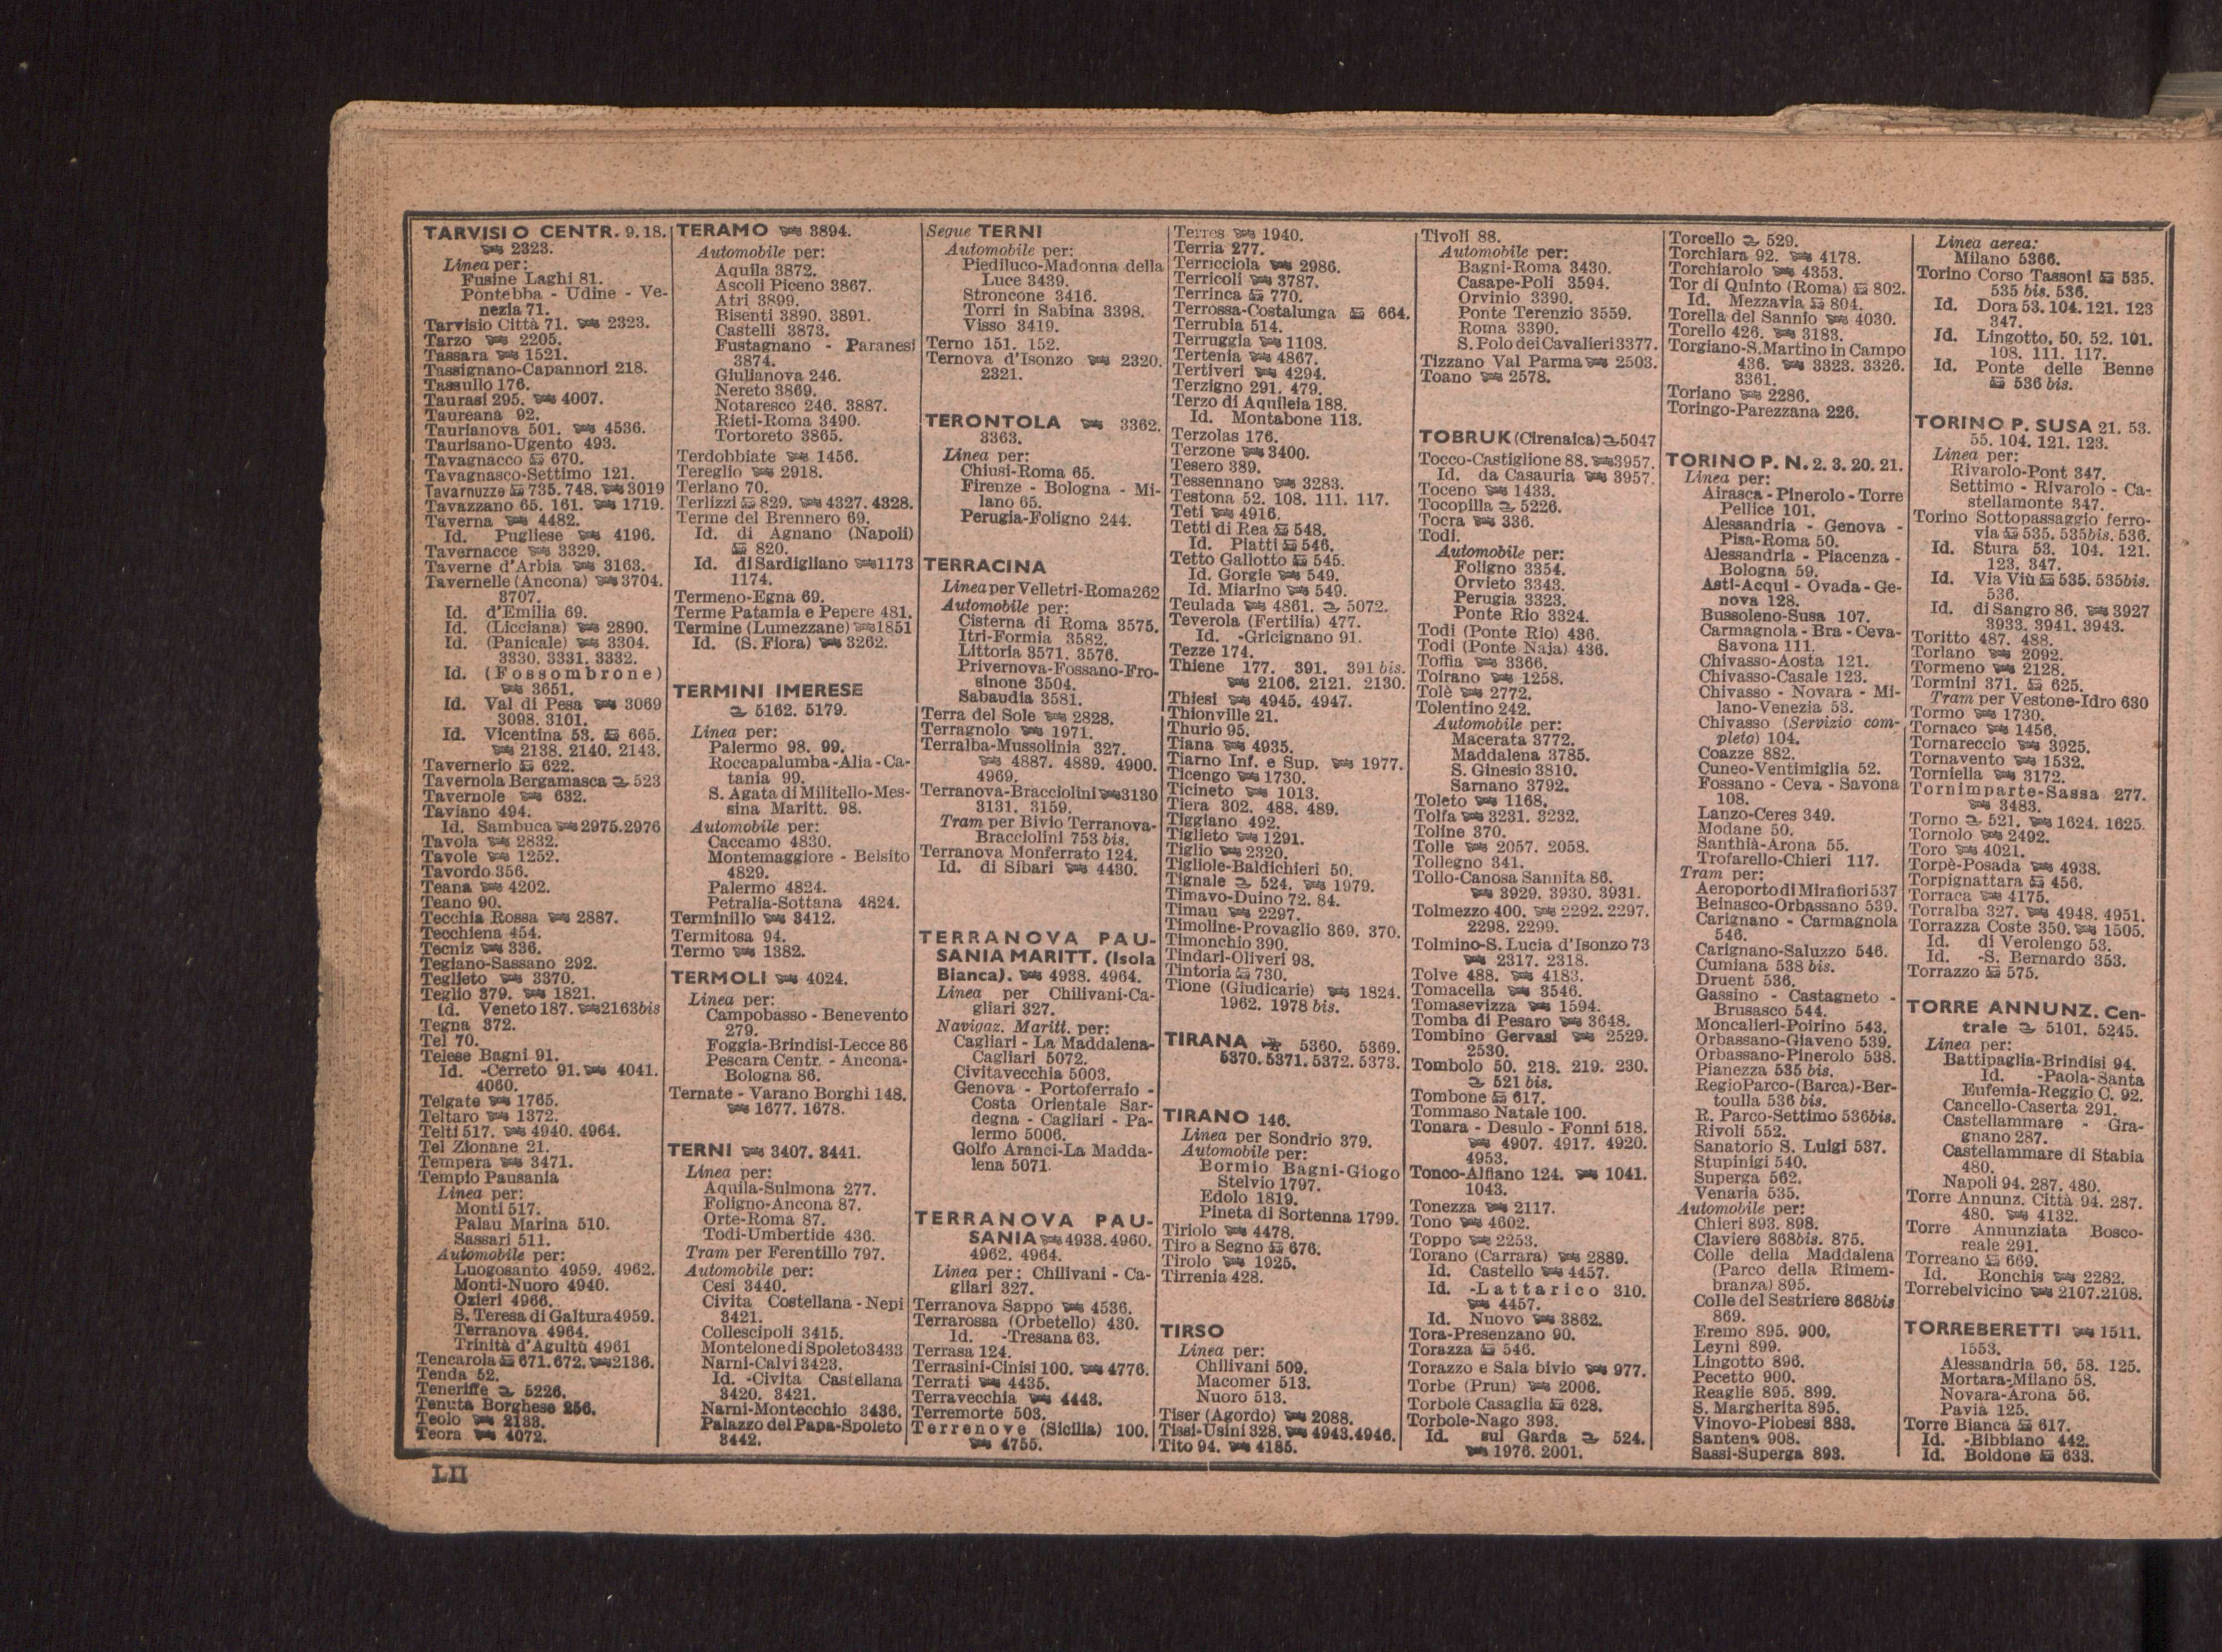 TARVISIO CENTR. 9.18.
2323.
Linea per:
Fusine Laghi 81.
Pontebba - Udine - Ve-
nezia 71.
Tarvisio Città 71. 2323.
Tarzo 2205.
Tassara 1521.
Tassignano-Capannori 218.
Tassullo 176.
Taurasi 295. 4007.
Taureana 92.
Taurianova 501. 4536.
Taurisano-Ugento 493.
Tavagnacco 670.
Tavagnasco-Settimo 121.
Tavarnuzze 735. 748. 3019
Tavazzano 65. 161. 1719.
Taverna 4482.
Id. Pugliese 4196.
Tavernacce 3329.
Taverne d'Arbia 3163.
Tavernelle (Ancona) 3704.
3707.
Id. d'Emilia 69.
Id. (Licciana) 2890.
Id. (Panicale) 3304.
3330. 3331. 3332.
Id. (Fossombrone)
3651.
Id. Val di Pesa 3069
3098. 3101.
Id. Vicentina 53. 665.
2138. 2140. 2143.
Tavernerio 622.
Tavernola Bergamasca 523
Tavernole 632.
Taviano 494.
Id. Sambuca 2975.2976
Tavola 2832.
Tavole 1252.
Tavordo 356.
Teana 4202.
Teano 90.
Tecchia Rossa 2887.
Tecchiena 454.
Tecniz 336.
Tegiano-Sassano 292.
Teglieto 3370.
Teglio 379. 1821.
Id. Veneto 187. 2163bis
Tegna 372.
Tel 70.
Telese Bagni 91.
Id. -Cerreto 91. 4041.
4060.
Telgate 1765.
Teltaro 1372.
Telti 517. 4940. 4964.
Tel Zionane 21.
Tempera 3471.
Tempio Pausania
Linea per:
Monti 517.
Palau Marina 510.
Sassari 511.
Automobile per:
Luogosanto 4959. 4962.
Monti-Nuoro 4940.
Ozieri 4966.
S. Teresa di Galtura4959.
Terranova 4964.
Trinità d'Agultù 4961
Tencarola 671. 672. 2136.
Tenda 52.
Teneriffe 5226.
Tenuta Borghese 256.
Teolo 2133.
Teora 4072.
TERAMO 3894.
Automobile per:
Aquila 3872.
Ascoli Piceno 3867.
Atri 3899.
Bisenti 3890. 3891.
Castelli 3873.
Fustagnano - Paranesi
3874.
Giulianova 246.
Nereto 3869.
Notaresco 246. 3887.
Rieti-Roma 3490.
Tortoreto 3865.
Terdobbiate 1456.
Tereglio 2918.
Terlano 70.
Terlizzi 829. 4327. 4328.
Terme del Brennero 69.
Id. di Agnano (Napoli)
820.
Id. di Sardigliano 1173
1174.
Termeno-Egna 69.
Terme Patamia e Pepere 481.
Termine (Lumezzane) 1851
Id. (S. Fiora) 3262.
TERMINI IMERESE
5162. 5179.
Linea per:
Palermo 98. 99.
Roccapalumba-Alia-Ca-
tania 99.
S. Agata di Militello-Mes-
sina Maritt. 98.
Automobile per:
Caccamo 4830.
Montemaggiore - Belsito
4829.
Palermo 4824.
Petralia-Sottana 4824.
Terminillo 3412.
Termitosa 94.
Termo 1382.
TERMOLI 4024.
Linea per:
Campobasso - Benevento
279.
Foggia-Brindisi-Lecce 86
Pescara Centr. - Ancona-
Bologna 86.
Ternate - Varano Borghi 148.
1677. 1678.
TERNI 3407. 3441.
Linea per:
Aquila-Sulmona 277.
Foligno-Ancona 87.
Orte-Roma 87.
Todi-Umbertide 436.
Tram per Ferentillo 797.
Automobile per:
Cesi 3440.
Civita Costellana - Nepi
3421.
Collescipoli 3415.
Montelone di Spoleto3433
Narni-Calvi 3423.
Id. -Civita Castellana
3420. 3421.
Narni-Montecchio 3436.
Palazzo del Papa-Spoleto
3442.
Segue TERNI
Automobile per:
Piediluco-Madonna della
Luce 3439.
Stroncone 3416.
Torri in Sabina 3398.
Visso 3419.
Terno 151. 152.
Ternova d'Isonzo 2320.
2321.
TERONTOLA 3362.
3363.
Linea per:
Chiusi-Roma 65.
Firenze - Bologna - Mi-
lano 65.
Perugia-Foligno 244.
TERRACINA
Linea per Velletri-Roma262
Automobile per:
Cisterna di Roma 3575.
Itri-Formia 3582.
Littoria 3571. 3576.
Privernova-Fossano-Fro-
sinone 3504.
Sabaudia 3581.
Terra del Sole 2828.
Terragnolo 1971.
Terralba-Mussolinia 327.
4887. 4889. 4900.
4969.
Terranova-Bracciolini 3130
3131. 3159.
Tram per Bivio Terranova-
Bracciolini 753 bis.
Terranova Monferrato 124.
Id. di Sibari 4430.
TERRANOVA PAU-
SANIA MARITT. (Isola
Bianca). 4938. 4964.
Linea per Chilivani-Ca-
gliari 327.
Navigaz. Maritt. per:
Cagliari - La Maddalena-
Cagliari 5072.
Civitavecchia 5003.
Genova - Portoferraio -
Costa Orientale Sar-
degna - Cagliari - Pa-
lermo 5006.
Golfo Aranci-La Madda-
lena 5071.
TERRANOVA PAU-
SANIA 4938. 4960.
4962. 4964.
Linea per: Chilivani - Ca-
gliari 327.
Terranova Sappo 4536.
Terrarossa (Orbetello) 430.
Id. -Tresana 63.
Terrasa 124.
Terrasini-Cinisi 100. 4776.
Terrati 4435.
Terravecchia 4448.
Terremorte 503.
Terrenove (Sicilia) 100.
4755.
Terres 1940.
Terria 277.
Terricciola 2986.
Terricoli 3787.
Terrinca 770.
Terrossa-Costalunga 664.
Terrubia 514.
Terruggia 1108.
Tertenia 4867.
Tertiveri 4294.
Terzigno 291. 479.
Terzo di Aquileia 188.
Id. Montabone 113.
Terzolas 176.
Terzone 3400.
Tesero 389.
Tessennano 3283.
Testona 52. 108. 111. 117.
Teti 4916.
Tetti di Rea 548.
Id. Piatti 546.
Tetto Gallotto 545.
Id. Gorgie 549.
Id. Miarino 549.
Teulada 4861. 5072.
Teverola (Fertilia) 477.
Id. -Gricignano 91.
Tezze 174.
Thiene 177. 391. 391 bis.
2106. 2121. 2130.
Thiesi 4945. 4947.
Thionville 21.
Thurio 95.
Tiana 4935.
Tiarno Inf. e Sup. 1977.
Ticengo 1730.
Ticineto 1013.
Tiera 302. 488. 489.
Tiggiano 492.
Tiglieto 1291.
Tiglio 2320.
Tigliole-Baldichieri 50.
Tignale 524. 1979.
Timavo-Duino 72. 84.
Timau 2297.
Timoline-Provaglio 369. 370.
Timonchio 390.
Tindari-Oliveri 98.
Tintoria 730.
Tione (Giudicarie) 1824.
1962. 1978 bis.
TIRANA 5360. 5369.
5370. 5371. 5372. 5373.
TIRANO 146.
Linea per Sondrio 379.
Automobile per:
Bormio Bagni-Giogo
Stelvio 1797.
Edolo 1819.
Pineta di Sortenna 1799.
Tiriolo 4478.
Tiro a Segno 676.
Tirolo 1925.
Tirrenia 428.
TIRSO
Linea per:
Chilivani 509.
Macomer 513.
Nuoro 513.
Tiser (Agordo) 2088.
Tissi-Usini 328. 4943.4946.
Tito 94. 4185.
Tivoli 88.
Automobile per:
Bagni-Roma 3430.
Casape-Poli 3594.
Orvinio 3390.
Ponte Terenzio 3559.
Roma 3390.
S. Polo dei Cavalieri3377.
Tizzano Val Parma 2503.
Toano 2578.
TOBRUK (Cirenaica) 5047
Tocco-Castiglione 88. 3957.
Id. da Casauria 3957.
Toceno 1433.
Tocopilla 5226.
Tocra 336.
Todi.
Automobile per:
Foligno 3354.
Orvieto 3343.
Perugia 3323.
Ponte Rio 3324.
Todi (Ponte Rio) 436.
Todi (Ponte Naja) 436.
Toffia 3366.
Toirano 1258.
Tolè 2772.
Tolentino 242.
Automobile per:
Macerata 3772.
Maddalena 3785.
S. Ginesio 3810.
Sarnano 3792.
Toleto 1168.
Tolfa 3231. 3232.
Toline 370.
Tolle 2057. 2058.
Tollegno 341.
Tollo-Canosa Sannita 86.
3929. 3930. 3931.
Tolmezzo 400. 2292. 2297.
2298. 2299.
Tolmino-S. Lucia d'Isonzo 73
2317. 2318.
Tolve 488. 4183.
Tomacella 3546.
Tomasevizza 1594.
Tomba di Pesaro 3648.
Tombino Gervasi 2529.
2530.
Tombolo 50. 218. 219. 230.
521 bis.
Tombone 617.
Tommaso Natale 100.
Tonara - Desulo - Fonni 518.
4907. 4917. 4920.
4953.
Tonco-Alfiano 124. 1041.
1043.
Tonezza 2117.
Tono 4602.
Toppo 2253.
Torano (Carrara) 2889.
Id. Castello 4457.
Id. -Lattarico 310.
4457.
Id. Nuovo 3862.
Tora-Presenzano 90.
Torazza 546.
Torazzo e Sala bivio 977.
Torbe (Prun) 2006.
Torbole Casaglia 628.
Torbole-Nago 393.
Id. sul Garda 524.
1976. 2001.
Torcello 529.
Torchiara 92. 4178.
Torchiarolo 4353.
Tor di Quinto (Roma) 802.
Id. Mezzavia 804.
Torella del Sannio 4030.
Torello 426. 3183.
Torgiano-S.Martino in Campo
436. 3323. 3326.
3361.
Toriano 2286.
Toringo-Parezzana 226.
TORINO P. N. 2. 3. 20. 21.
Linea per:
Airasca - Pinerolo - Torre
Pellice 101.
Alessandria - Genova -
Pisa-Roma 50.
Alessandria - Piacenza -
Bologna 59.
Asti-Acqui - Ovada - Ge-
nova 128.
Bussoleno-Susa 107.
Carmagnola - Bra - Ceva-
Savona 111.
Chivasso-Aosta 121.
Chivasso-Casale 123.
Chivasso - Novara - Mi-
lano-Venezia 53.
Chivasso (Servizio com-
pleto) 104.
Coazze 882.
Cuneo-Ventimiglia 52.
Fossano - Ceva - Savona
108.
Lanzo-Ceres 349.
Modane 50.
Santhià-Arona 55.
Trofarello-Chieri 117.
Tram per:
Aeroporto di Mirafiori 537
Beinasco-Orbassano 539.
Carignano - Carmagnola
546.
Carignano-Saluzzo 546.
Cumiana 538 bis.
Druent 536.
Gassino - Castagneto -
Brusasco 544.
Moncalieri-Poirino 543.
Orbassano-Giaveno 539.
Orbassano-Pinerolo 538.
Pianezza 535 bis.
Regio Parco-(Barca)-Ber-
toulla 536 bis.
R. Parco-Settimo 536bis.
Rivoli 552.
Sanatorio S. Luigi 537.
Stupinigi 540.
Superga 562.
Venaria 535.
Automobile per:
Chieri 893. 898.
Claviere 868bis. 875.
Colle della Maddalena
(Parco della Rimem-
branza) 895.
Colle del Sestriere 868bis
869.
Eremo 895. 900.
Leynì 899.
Lingotto 896.
Pecetto 900.
Reaglie 895. 899.
S. Margherita 895.
Vinovo-Piobesi 883.
Santena 908.
Sassi-Superga 893.
Linea aerea:
Milano 5366.
Torino Corso Tassoni 535.
535 bis. 536.
Id. Dora 53. 104. 121. 123
347.
Id. Lingotto. 50. 52. 101.
108. 111. 117.
Id. Ponte delle Benne
536 bis.
TORINO P. SUSA 21. 53.
55. 104. 121. 123.
Linea per:
Rivarolo-Pont 347.
Settimo - Rivarolo - Ca-
stellamonte 347.
Torino Sottopassaggio ferro-
via 535. 535bis. 536.
Id. Stura 53. 104. 121.
123. 347.
Id. Via Viù 535. 535bis.
536.
Id. di Sangro 86. 3927
3933. 3941. 3943.
Toritto 487. 488.
Torlano 2092.
Tormeno 2128.
Tormini 371. 625.
Tram per Vestone-Idro 630
Tormo 1730.
Tornaco 1456.
Tornareccio 3925.
Tornavento 1532.
Torniella 3172.
Tornimparte-Sassa 277.
3483.
Torno 521. 1624. 1625.
Tornolo 2492.
Toro 4021.
Torpè-Posada 4938.
Torpignattara 456.
Torraca 4175.
Torralba 327. 4948. 4951.
Torrazza Coste 350. 1505.
Id. di Verolengo 53.
Id. -S. Bernardo 353.
Torrazzo 575.
TORRE ANNUNZ. Cen-
trale 5101. 5245.
Linea per:
Battipaglia-Brindisi 94.
Id. -Paola-Santa
Eufemia-Reggio C. 92.
Cancello-Caserta 291.
Castellammare - Gra-
gnano 287.
Castellammare di Stabia
480.
Napoli 94. 287. 480.
Torre Annunz. Città 94. 287.
480. 4132.
Torre Annunziata Bosco-
reale 291.
Torreano 669.
Id. Ronchis 2282.
Torrebelvicino 2107.2108.
TORREBERETTI 1511.
1553.
Alessandria 56. 58. 125.
Mortara-Milano 58.
Novara-Arona 56.
Pavia 125.
Torre Bianca 617.
Id. -Bibbiano 442.
Id. Boldone 633.
LII